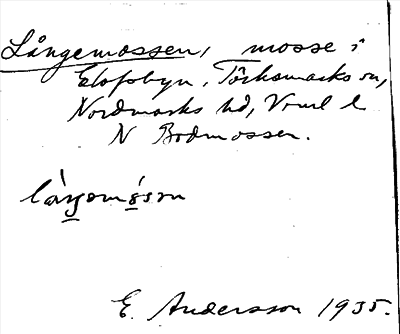 Långemossen, mosse i
Elofsbyn, Töcksmarks sn,
Nordmarks hd, Vrml l
N Bodmossen.
làŋomósɜn
E. Andersson 1935.